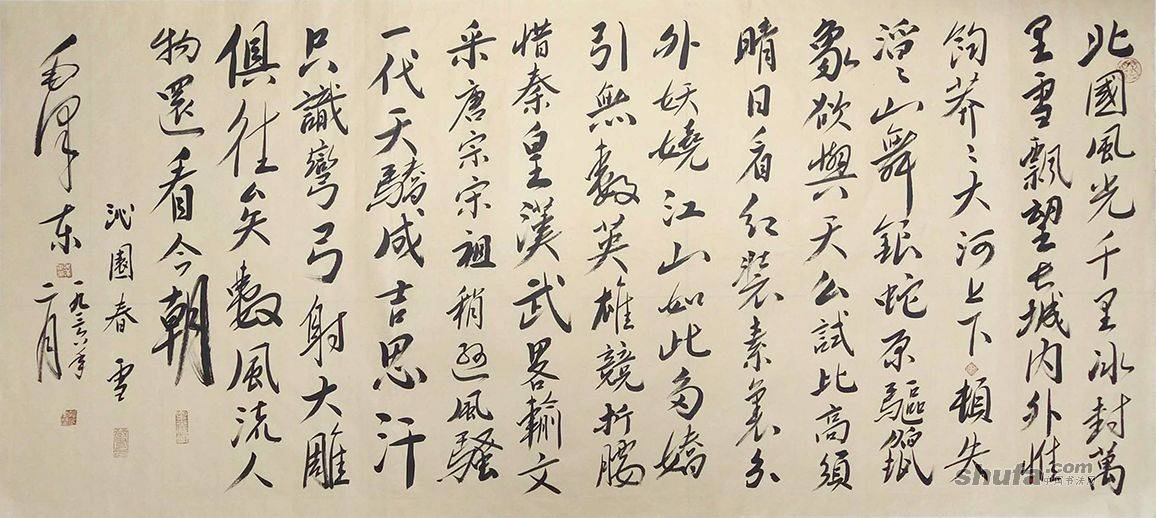 北國風光千里冰封萬
里雪飄望长城内外惟
馀莽〻大河上下頓失
滔〻山舞銀蛇原驅蠟
象欲與天公試比高須
晴日看紅裝素裹分
外妖嬈江山如此多嬌
引無數英雄競折腰
惜秦皇漢武畧輸文
采唐宗宋祖稍遜風騷
一代天驕成吉思汗
只識彎弓射大雕
俱往矣數風流人
物還看今朝
沁園春雪
毛澤东
一九三六年
二月
shufa.com
中国书法网